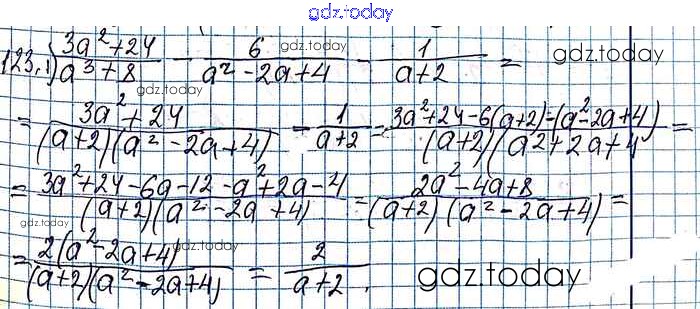 gdz.today
123.1) (3a²+24)/(a³+8) - 6/(a²-2a+4) - 1/(a+2) = gdz.today
gdz.today
gdz.today
= (3a²+24)/((a+2)(a²-2a+4)) - 1/(a+2) = (3a²+24-6(a+2)-(a²-2a+4))/((a+2)(a²+2a+4 =
= (3a²+24-6a-12-a²+2a-4)/((a+2)(a²-2a+4)) = (2a²-4a+8)/((a+2)(a²-2a+4)) =
gdz.today
gdz.today
= 2(a²-2a+4)/((a+2)(a²-2a+4)) = 2/(a+2). gdz.today